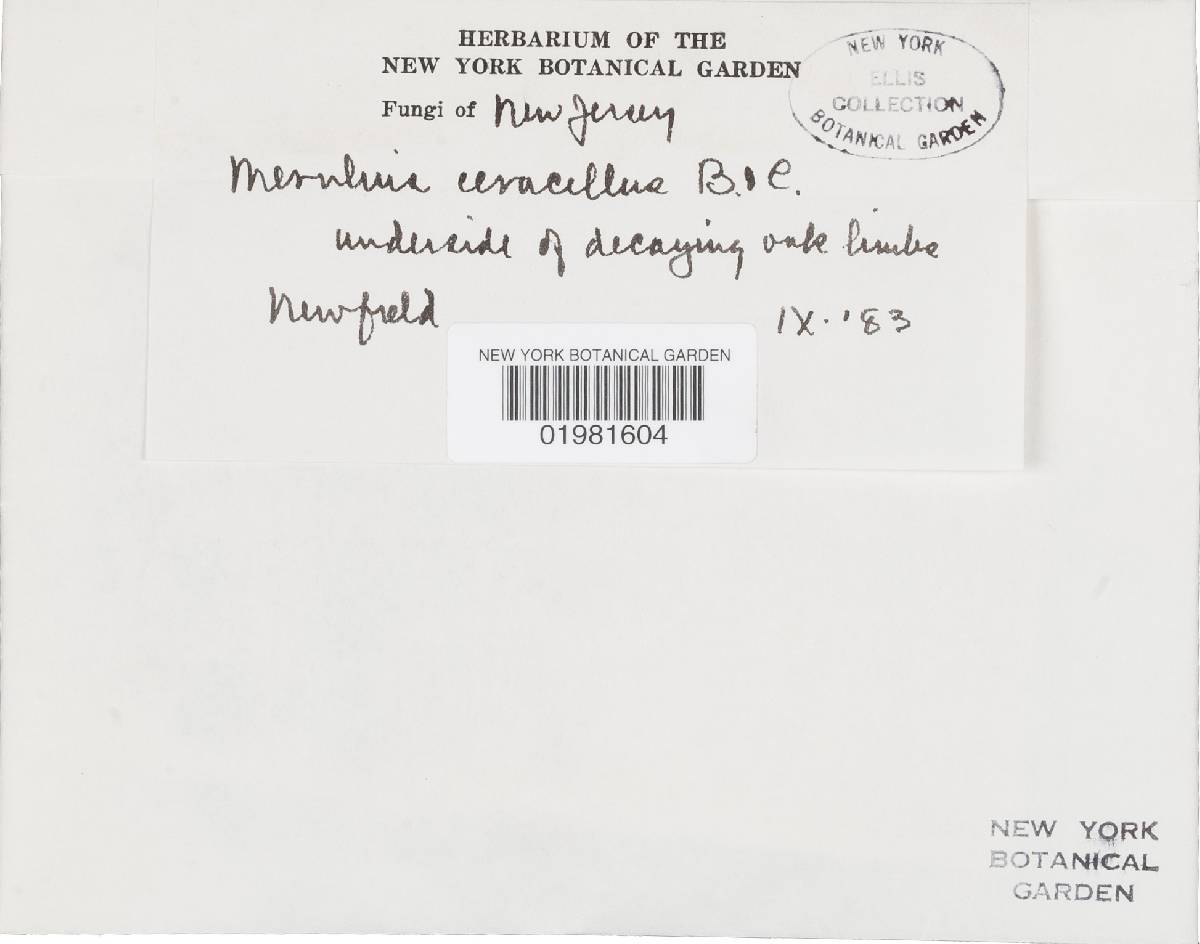 HERBARIUM OF THE
NEW YORK BOTANICAL GARDEN
Fungi of New Jersey
NEW YORK
ELLIS
COLLECTION
BOTANICAL GARDEN
Merulius ceracellus B. & C.
underside of decaying oak limbs
Newfield IX. '83
NEW YORK BOTANICAL GARDEN
01981604
NEW YORK
BOTANICAL
GARDEN